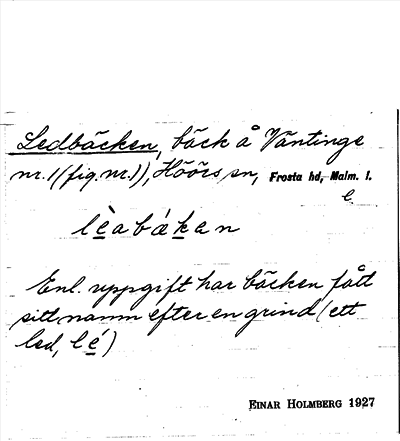 Ledbäcken, bäck å Väntinge
nr. 1 (fig. nr. 1), Höörs sn, Frosta hd, Malm. l.
l è a b ǽ k a n
Enl. uppgift har bäcken fått
sitt namn efter en grind (ett
led, l é)
EINAR HOLMBERG 1927